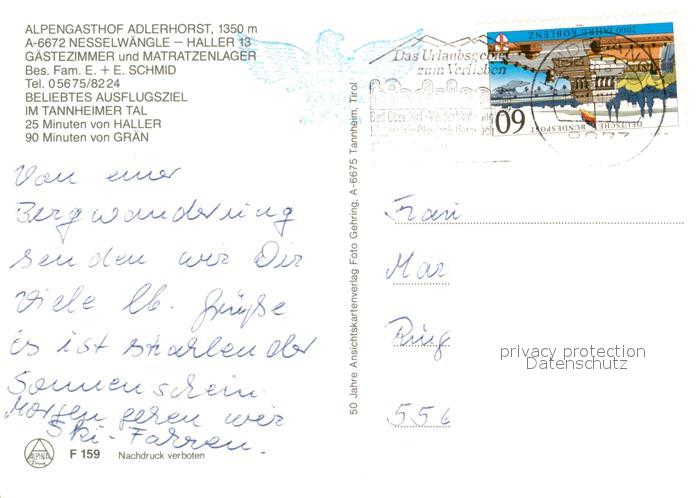 ALPENGASTHOF ADLERHORST, 1350 m
A-6672 NESSELWÄNGLE – HALLER 13
GÄSTEZIMMER und MATRATZENLAGER
Bes. Fam. E. + E. SCHMID
Tel. 05675/8224
BELIEBTES AUSFLUGSZIEL
IM TANNHEIMER TAL
25 Minuten von HALLER
90 Minuten von GRÄN
Von einer
Bergwanderung
senden wir Dir
viele lb. Grüße
es ist strahlender
Sonnenschein
Morgen gehen wir
Ski-Fahren.
ALPINA
F 159 Nachdruck verboten
50 Jahre Ansichtskartenverlag Foto Gehring, A-6675 Tannheim, Tirol
Das Urlaubsgebiet
zum Verlieben
Bad Oberdorf · Vorderhindelang
2000 JAHRE KOBLENZ
DEUTSCHE BUNDESPOST
60
Frau
Mar
Ring
556
privacy protection
Datenschutz